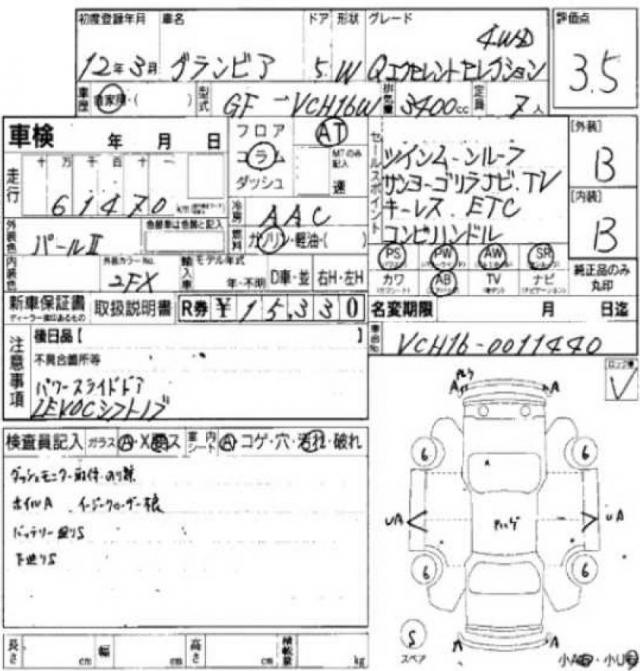 初度登録年月 車名 ドア 形状 グレード 評価点
4WD
12年3月 グランビア 5 W Qエクセレントセレクション 3.5
車歴 自家用・( ) 型式 GF-VCH16W 排気量 3400cc 定員 7人
車検 年 月 日
フロア コラム ダッシュ AT MTのみ記入 速
走行 十 万 千 百 十 一
61470
冷房 AAC
燃料 ガソリン・軽油・( )
セールスポイント
ツインムーンルーフ
サンヨーゴリラナビ.TV
キーレス.ETC
コンビハンドル
[外装] B
[内装] B
純正品のみ丸印
PS PW AW SR
カワ AB TV ナビ
外装色 パールⅡ 色替車は色替と記入
内装色 外装カラーNo. 2FX
輸入車 モデル年式 年・不明 D車・並 右H・左H
新車保証書 ディーラー印のあるもの 取扱説明書 R券 ¥15,330
名変期限 月 日迄
車台No. VCH16-0011440
注意事項
後日品【 】
不具合箇所等
パワースライドドア
LEVOCシフトノブ
検査員記入 ガラス A・X・ ス 室内 シート A・コゲ・穴・汚れ・破れ
ホイルA
バッテリー
下廻りS
A A
6 6
UA UA
6 6
S スペア
A A
長さ cm 幅 cm 高さ cm 積載量 kg